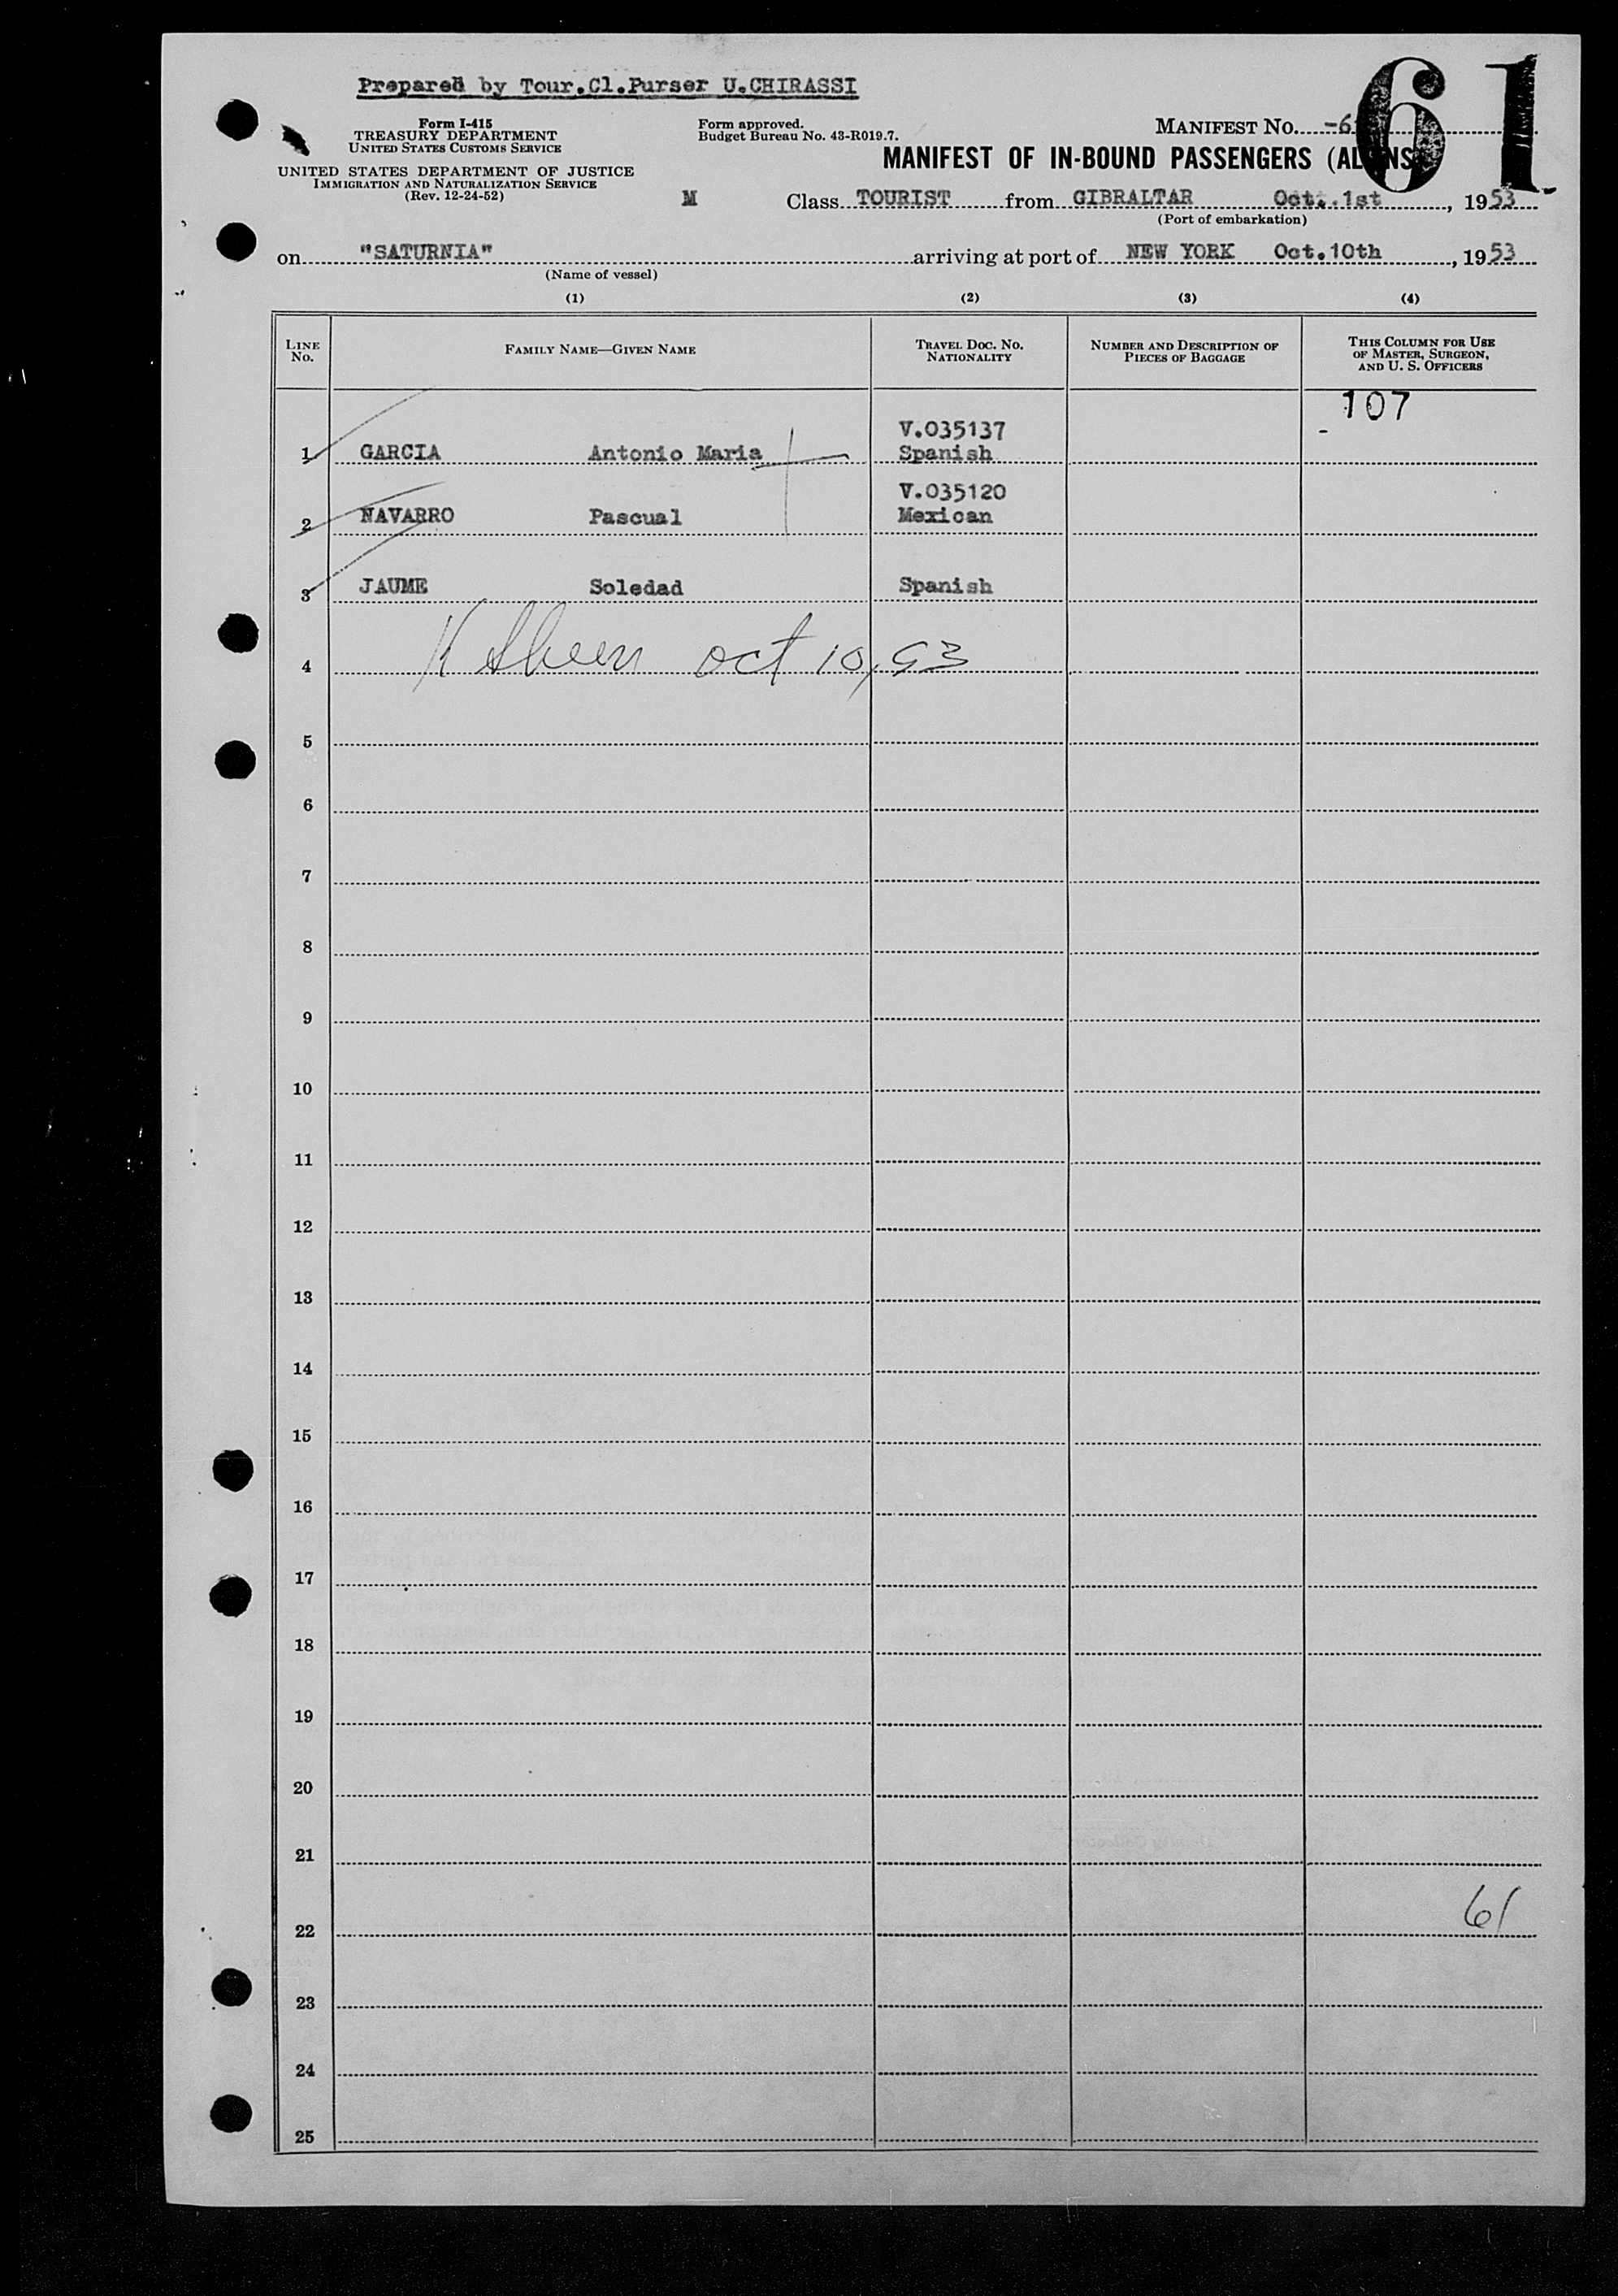 Prepared by Tour.Cl.Purser U.CHIRASSI
61
Form I-415
TREASURY DEPARTMENT
UNITED STATES CUSTOMS SERVICE
UNITED STATES DEPARTMENT OF JUSTICE
IMMIGRATION AND NATURALIZATION SERVICE
(Rev. 12-24-52)
Form approved.
Budget Bureau No. 43-R019.7.
MANIFEST No. -6
MANIFEST OF IN-BOUND PASSENGERS (AL NS
M Class TOURIST from GIBRALTAR Oct. 1st, 1953
(Port of embarkation)
on "SATURNIA" arriving at port of NEW YORK Oct.10th, 1953
(Name of vessel)
(1) (2) (3) (4)
LINE No. FAMILY NAME—GIVEN NAME TRAVEL DOC. No. NATIONALITY NUMBER AND DESCRIPTION OF PIECES OF BAGGAGE THIS COLUMN FOR USE OF MASTER, SURGEON, AND U. S. OFFICERS
107
V.035137
1 GARCIA Antonio Maria Spanish
V.035120
2 NAVARRO Pascual Mexican
3 JAUME Soledad Spanish
4 oct 10, 53
5
6
7
8
9
10
11
12
13
14
15
16
17
18
19
20
21
22 61
23
24
25